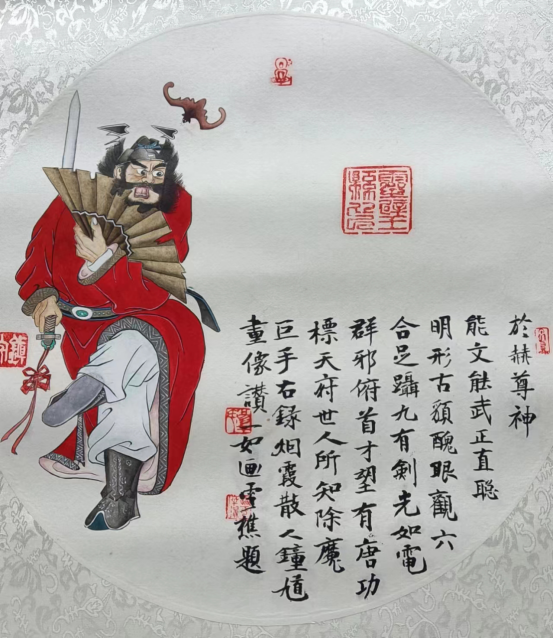 於赫尊神
能文能武正直聰
明形古貌醜眼觀六
合足躡九有劍光如電
群邪俯首才望有唐功
標天府世人所知除魔
巨手右録烟霞散人鐘馗
畫像讚 一如画雪樵題
靈璧縣印
鎮